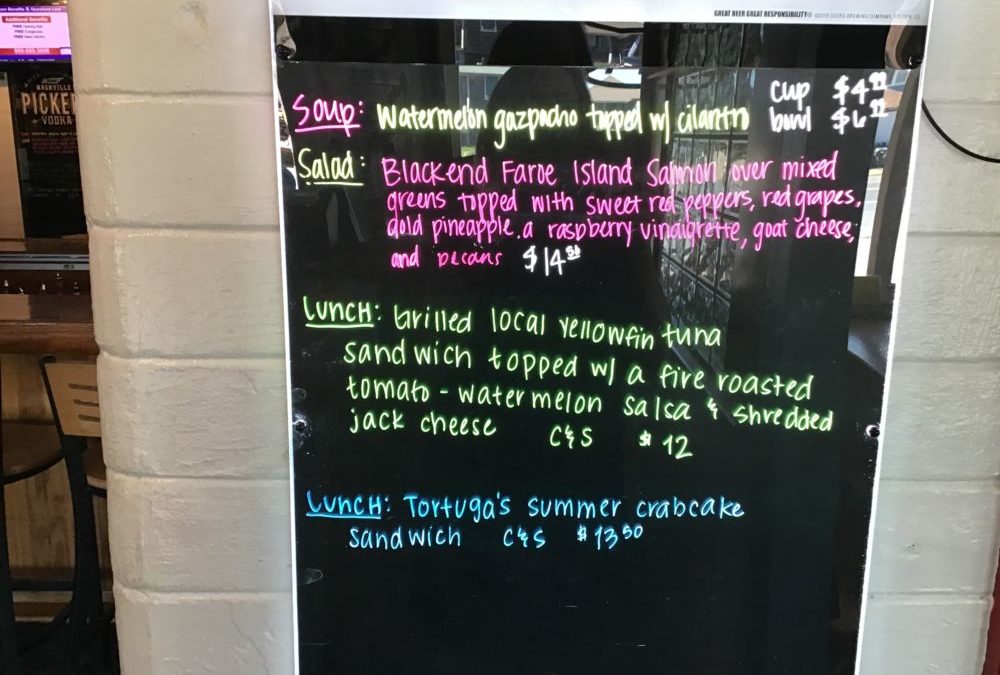 Additional Benefits
NASHVILLE
PICKER
VODKA
GREAT BEER GREAT RESPONSIBILITY®
Soup: Watermelon gazpacho topped w/ cilantro cup $4.99
bowl $6.99
Salad: Blackend Faroe Island Salmon over mixed
greens topped with sweet red peppers, red grapes,
gold pineapple, a raspberry vinaigrette, goat cheese,
and pecans $14.50
LUNCH: Grilled local yellowfin tuna
sandwich topped w/ a fire roasted
tomato - watermelon salsa & shredded
jack cheese C&S $12
LUNCH: Tortuga's summer crabcake
sandwich C&S $13.50